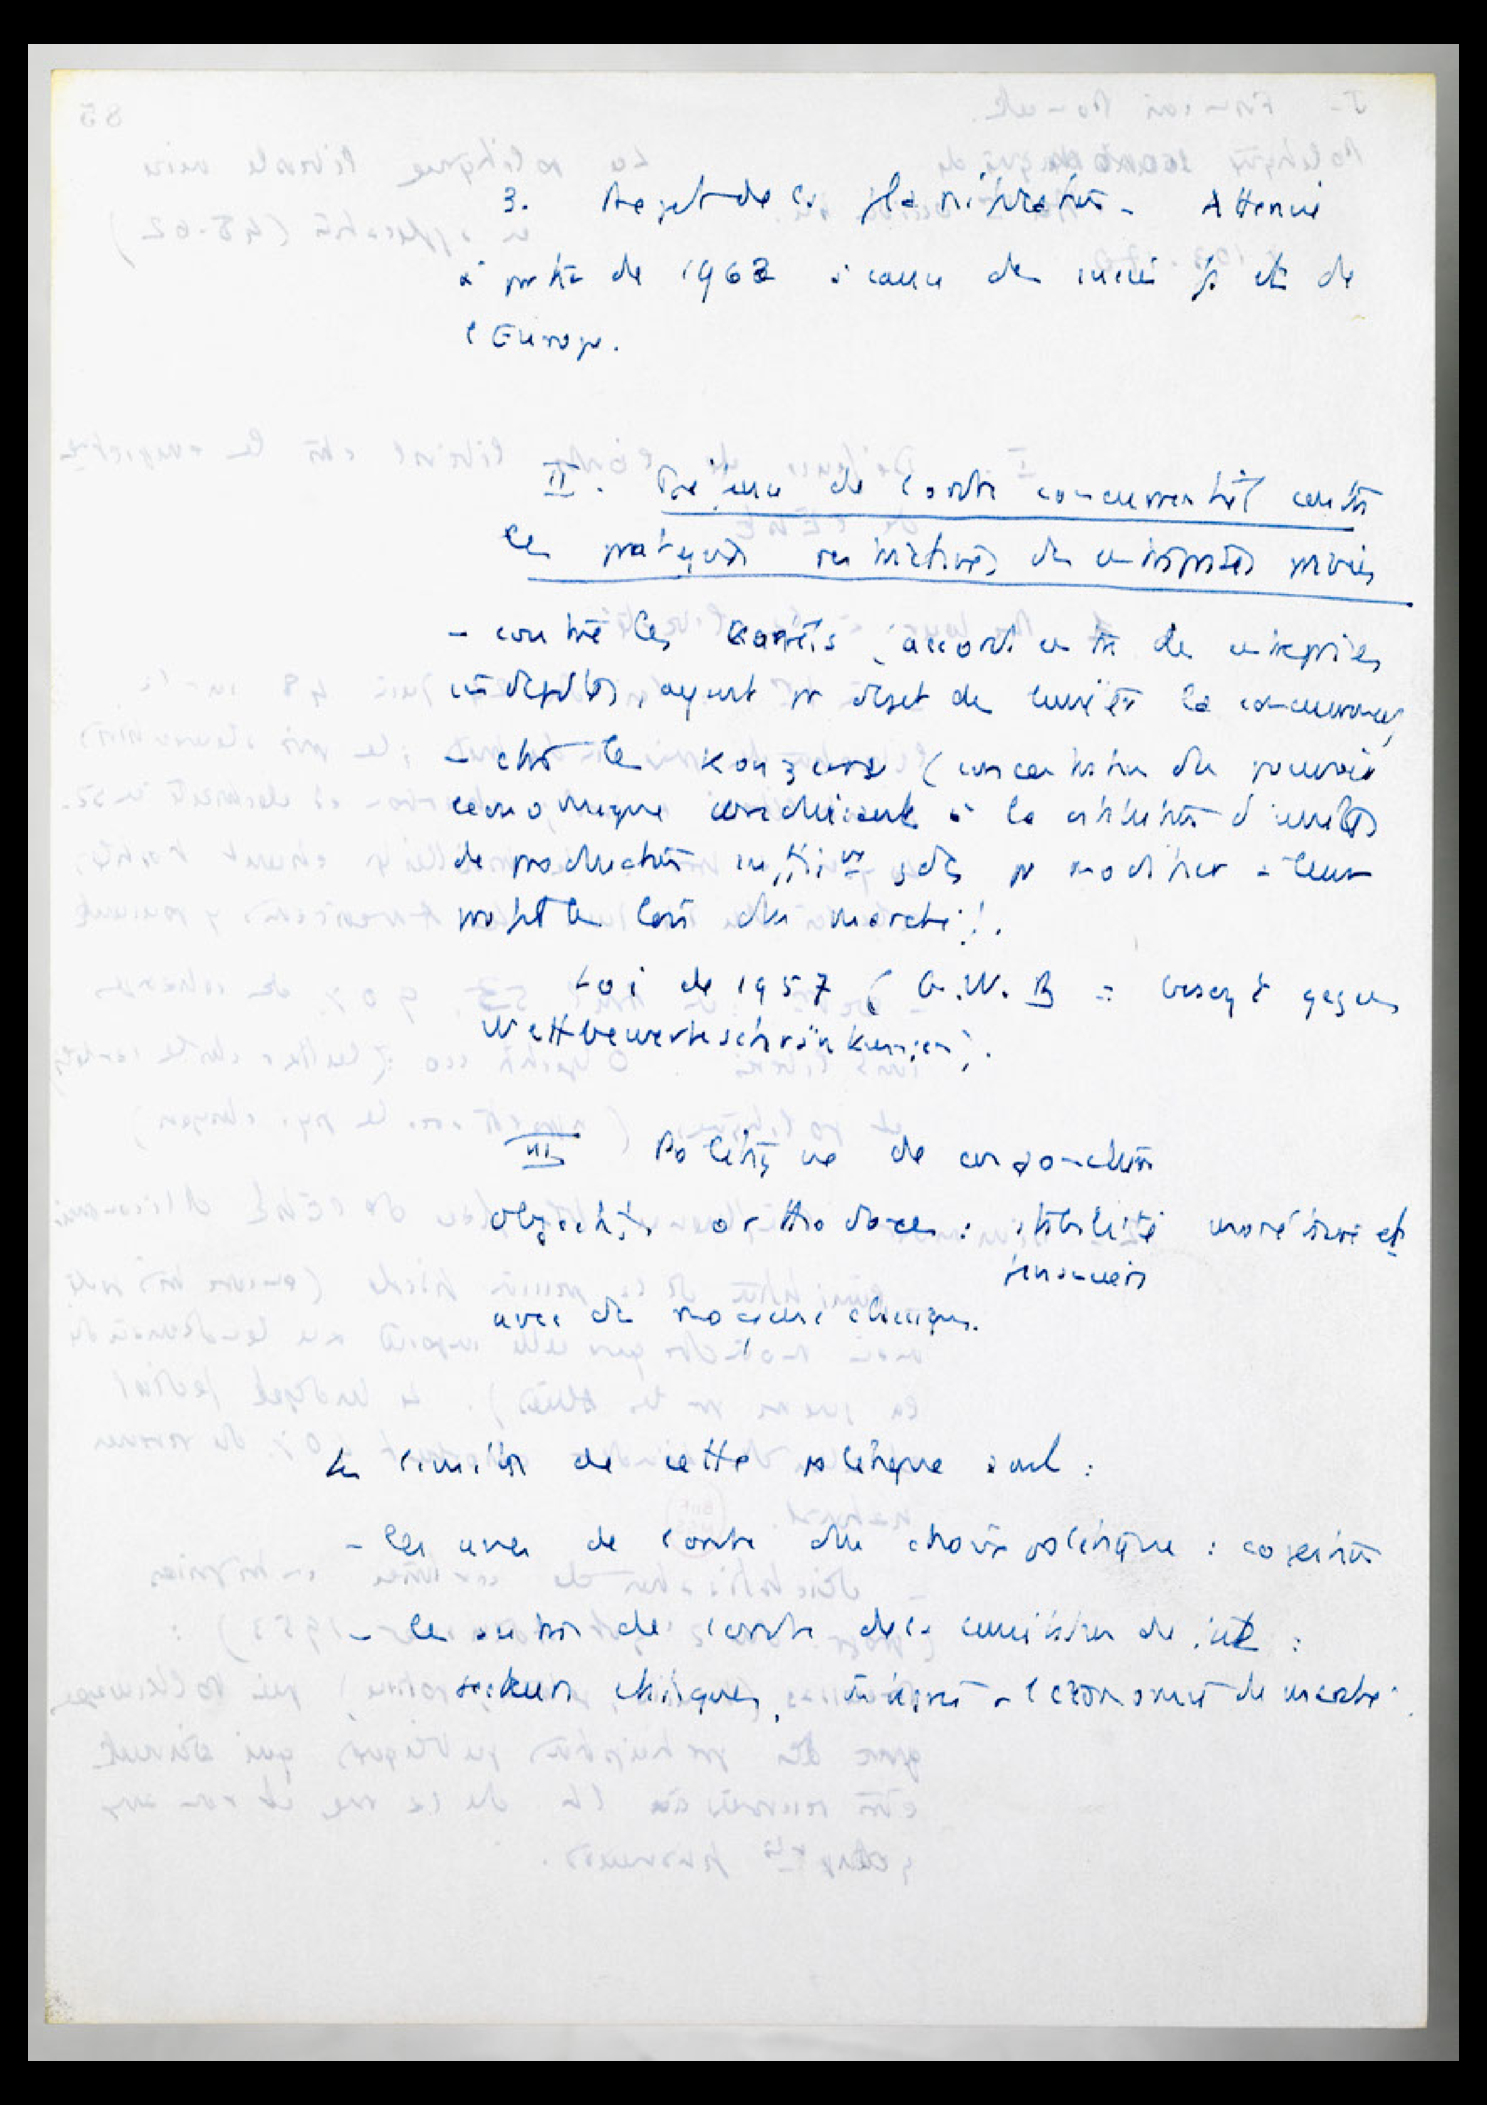 3. Rejet de la planification - Atténué
à partir de 1962 à cause de et de
l'Europe.
II. Défense de l'ordre concurrentiel contre
les pratiques restrictives des entreprises privées
- contre les cartels (accord entre des entreprises
indépdtes, ayant pr objet de limiter la concurrence)
- ctre les Konzerns (concentration du pouvoir
économique conduisant à la d'unités
de production pr modifier à leur
profit les lois du marché).
Loi de 1957 (G.W.B = Gesetz gegen
Wettbewerbsschränkungen).
III Politique de conjoncture
objectifs orthodoxes : stabilité monétaire et
financière
avec des moyens classiques.
Les limites de cette politique sont :
- les unes de l'ordre du choix politique : cogestion
- les autres de l'ordre de la limitation de :
secteurs critiques, l'économie de marché.